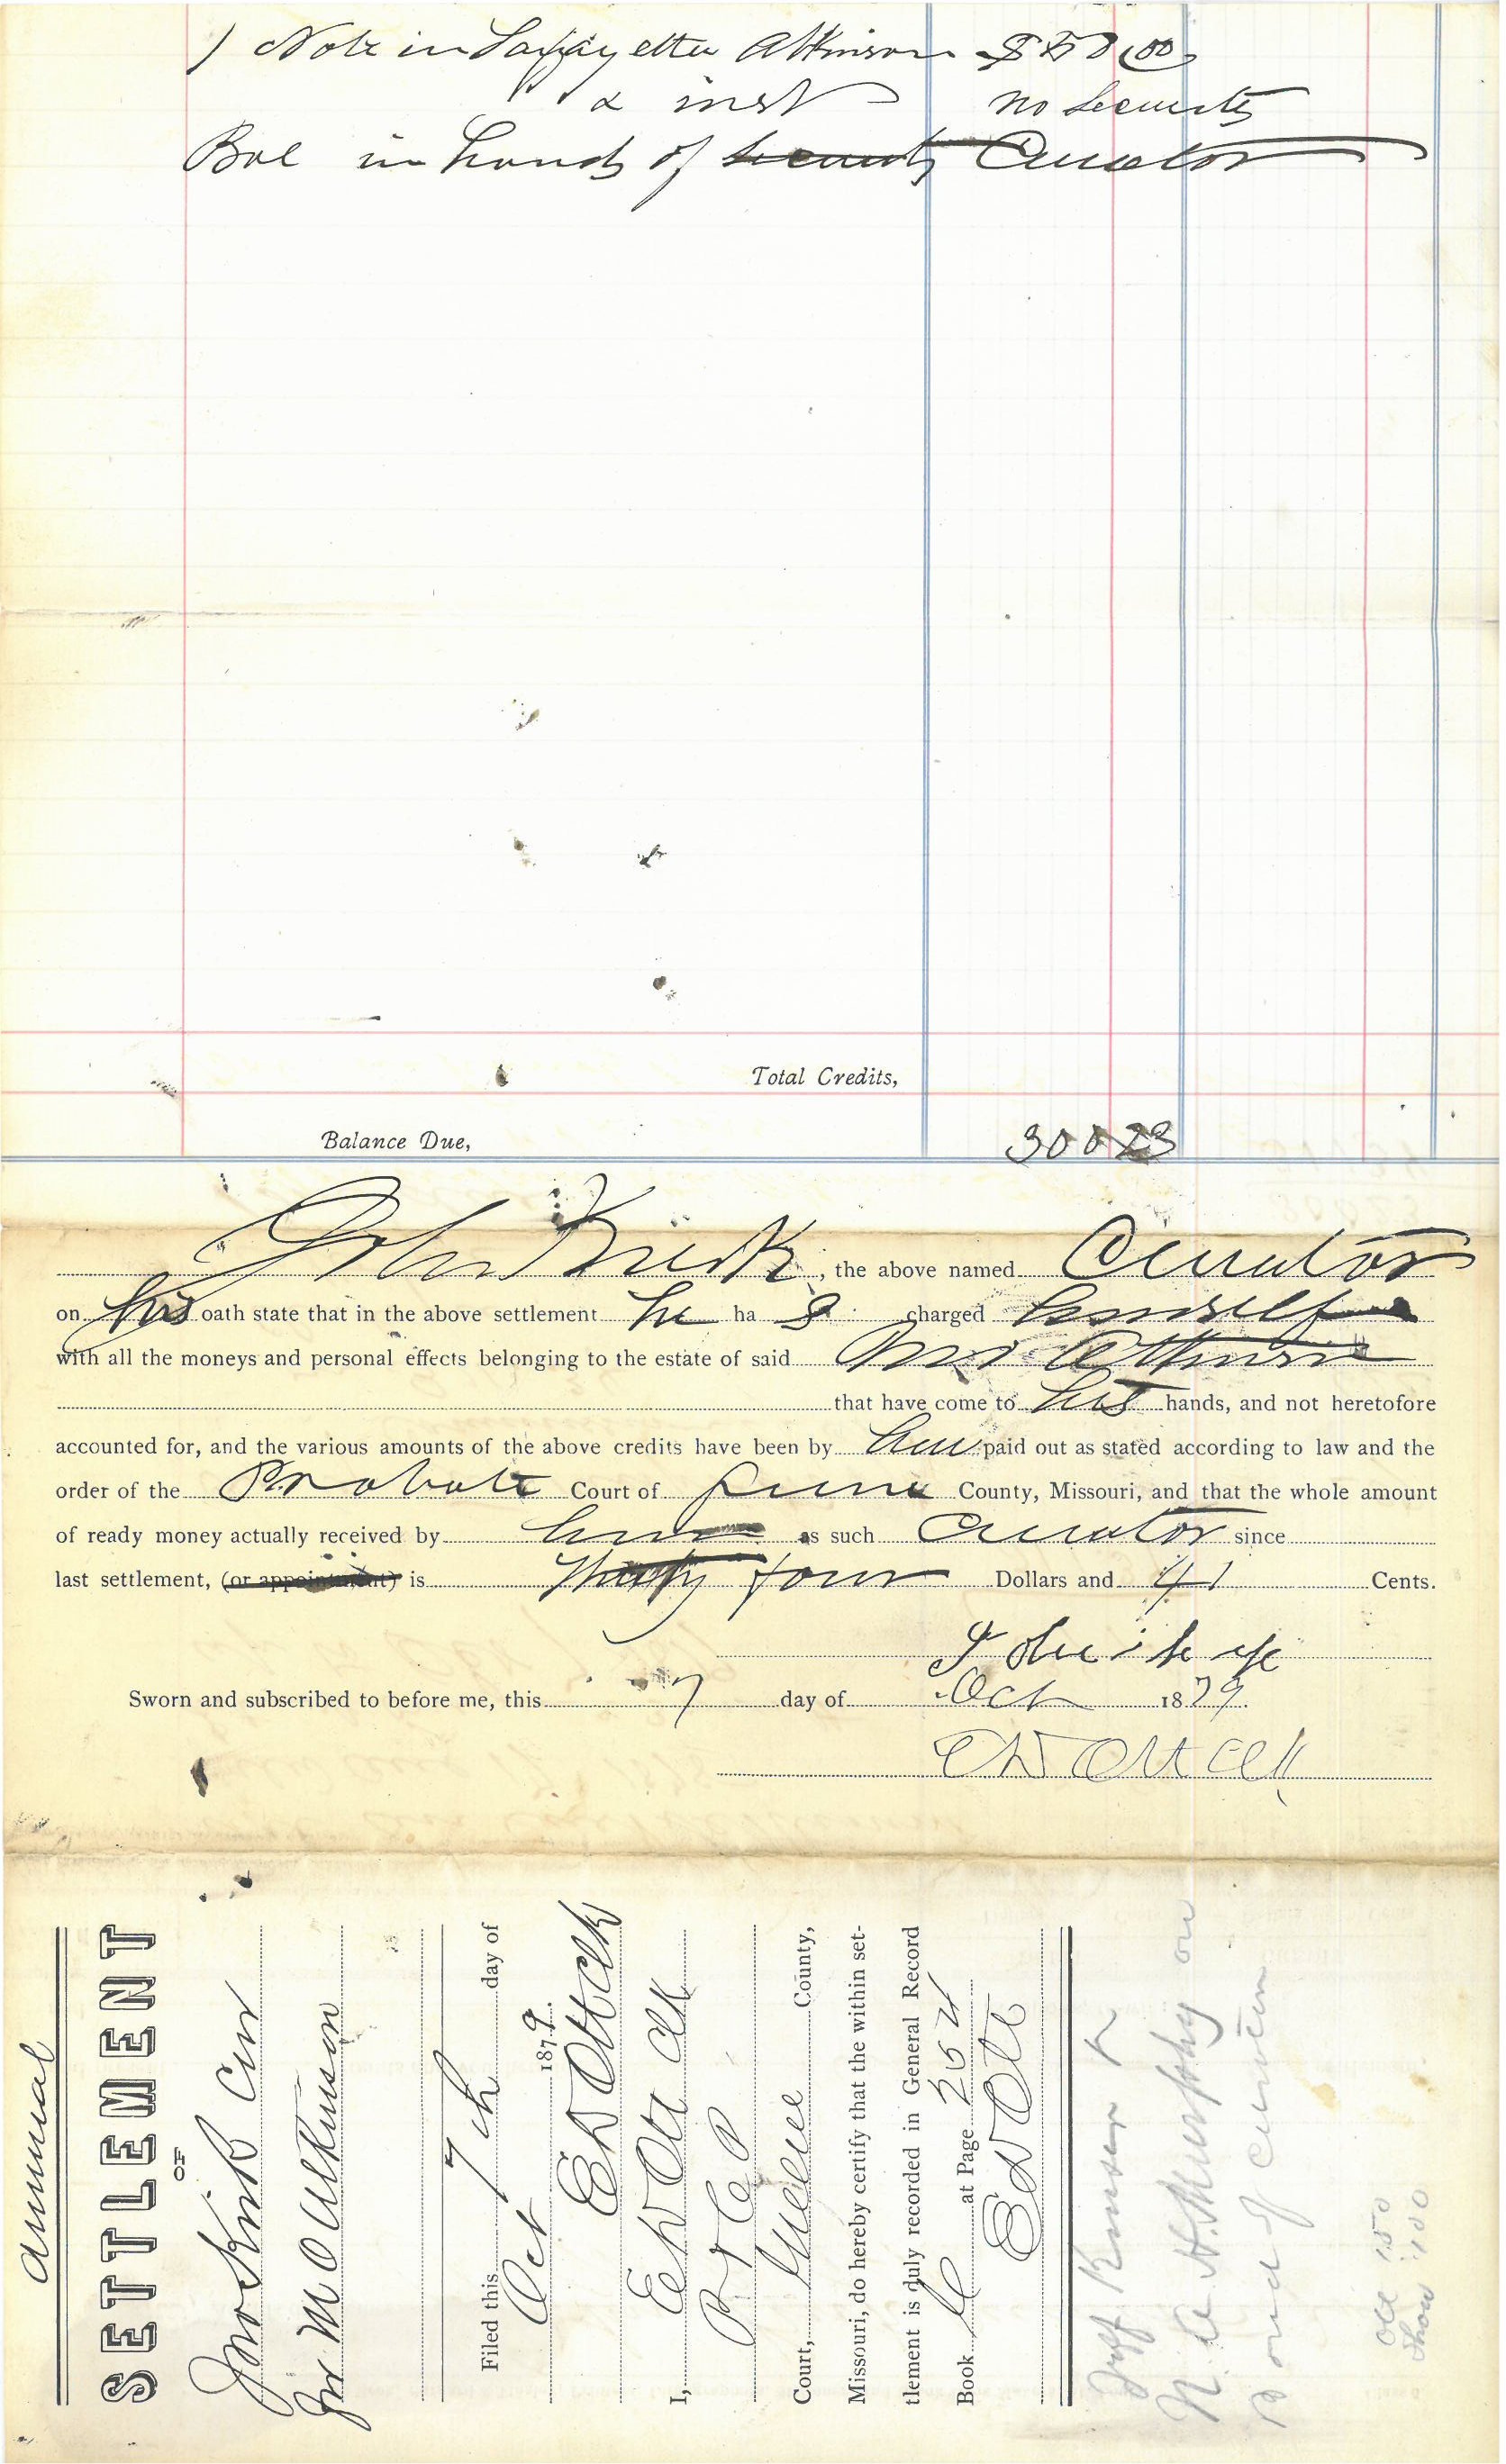 ) Note in Lafayette Atkinson $50.00
& inst no Security
Bal in hands of security Curator
Total Credits,
Balance Due, 300 23
John Kirk, the above named Curator
on his oath state that in the above settlement he ha s charged himself
with all the moneys and personal effects belonging to the estate of said Atkinson
that have come to his hands, and not heretofore
accounted for, and the various amounts of the above credits have been by him paid out as stated according to law and the
order of the Probate Court of Greene County, Missouri, and that the whole amount
of ready money actually received by him as such Curator since
last settlement, (or appointment) is Thirty four Dollars and 41 Cents.
Sworn and subscribed to before me, this 7 day of Oct 1879.
E W Ott Clk
Annual
SETTLEMENT
OF
Jno Kirk Cur
M Atkinson
Filed this 7th day of
Oct 1879
E W Ott Clk
I, E W Ott Clk
Court, Greene County,
Missouri, do hereby certify that the within set-
tlement is duly recorded in General Record
Book at Page 252
E W Ott
Jeff Kinser &
N. A. H. Murphy on
Bond of
Old 150
100